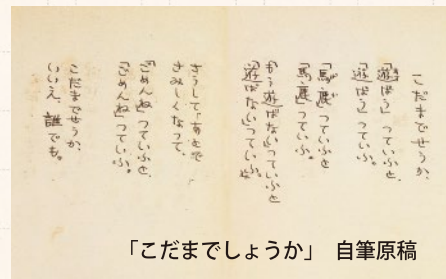 こだまでせうか、
「遊ばう」つていふと、
「遊ばう」つていふ。
「馬鹿」つていふと
「馬鹿」つていふ。
「もう遊ばない」つていふと
「遊ばない」つていふ。
さうして、あとで
さみしくなつて、
「ごめんね」つていふと、
「ごめんね」つていふ。
こだまでせうか、
いいえ、誰でも。
「こだまでしょうか」 自筆原稿